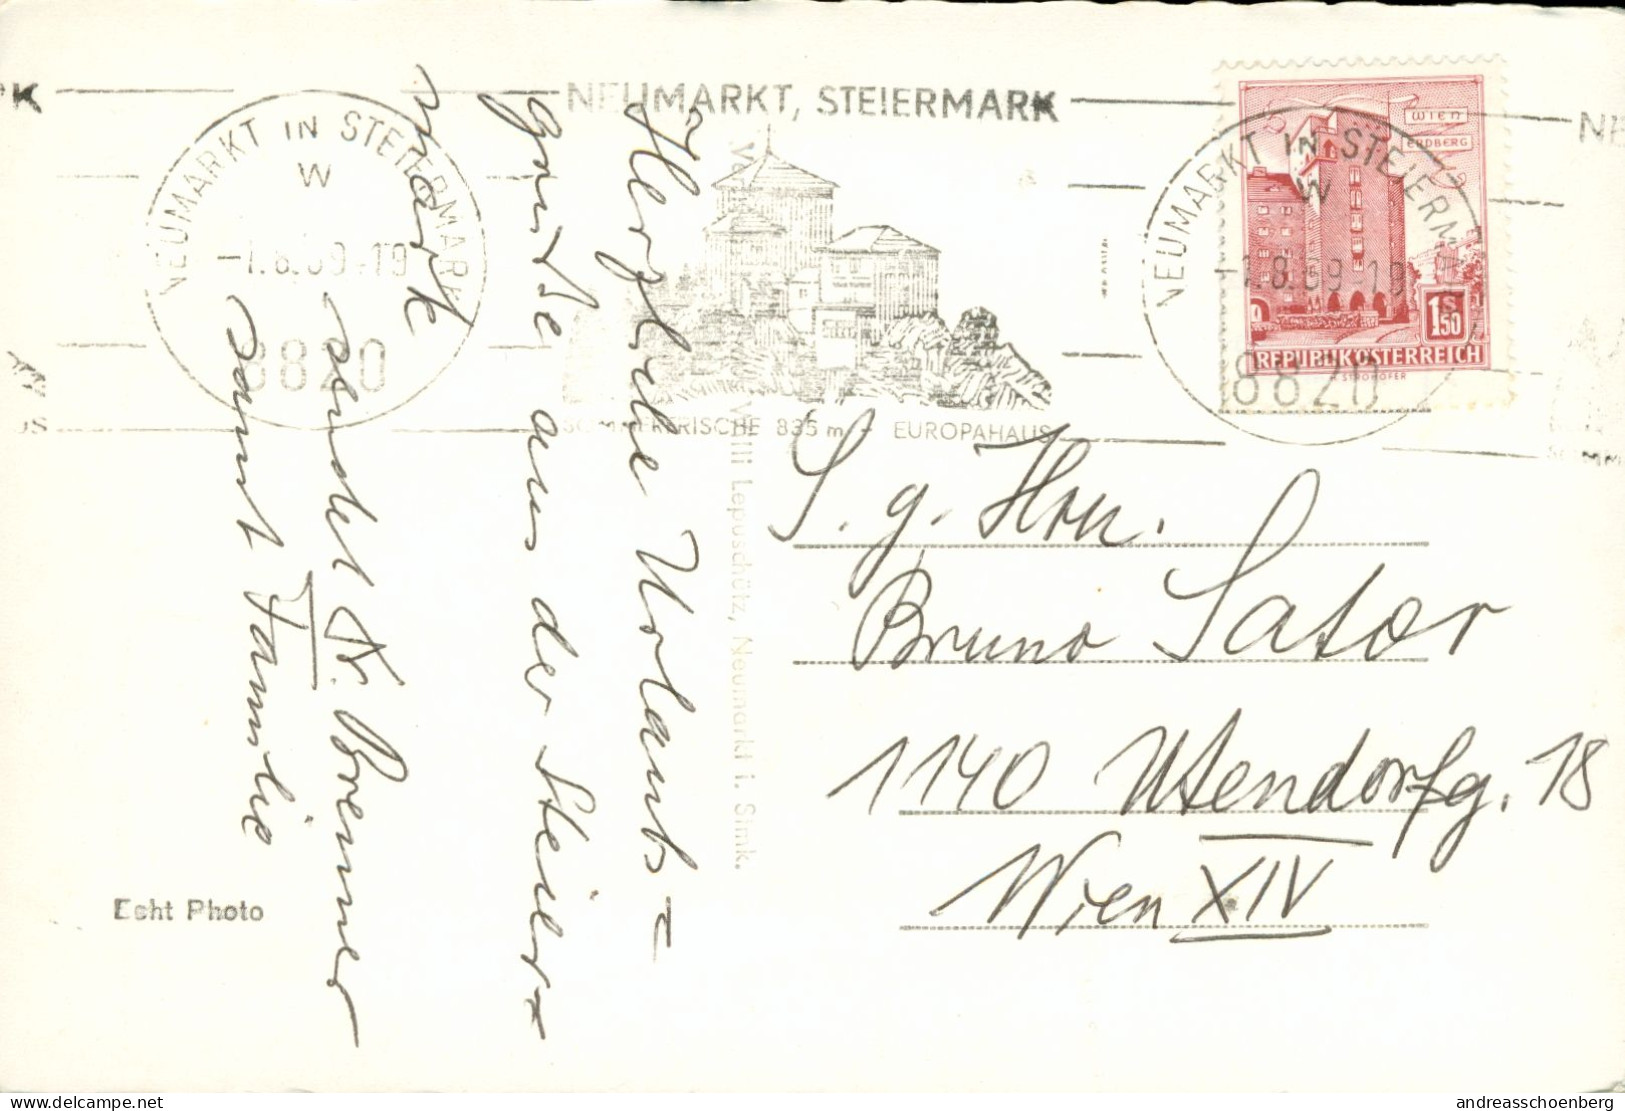 NEUMARKT, STEIERMARK
NEUMARKT IN STEIERMARK
W
-1.8.69-19
8820
SOMMERFRISCHE 835 m - EUROPAHAUS
NEUMARKT IN STEIERMARK
W
-1.8.69-19
8820
WIEN
ERDBERG
1 S 50
REPUBLIK ÖSTERREICH
H. STROHOFER
Herzliche Urlaubs=
grüße aus der Steier=
mark
sendet Fr. Bremner
samt Familie
Willi Lepuschütz, Neumarkt i. Stmk.
S. g. Hrn.
Bruno Sator
1140 Utendorfg. 18
Wien XIV
Echt Photo
www.delcampe.net
andreasschoenberg